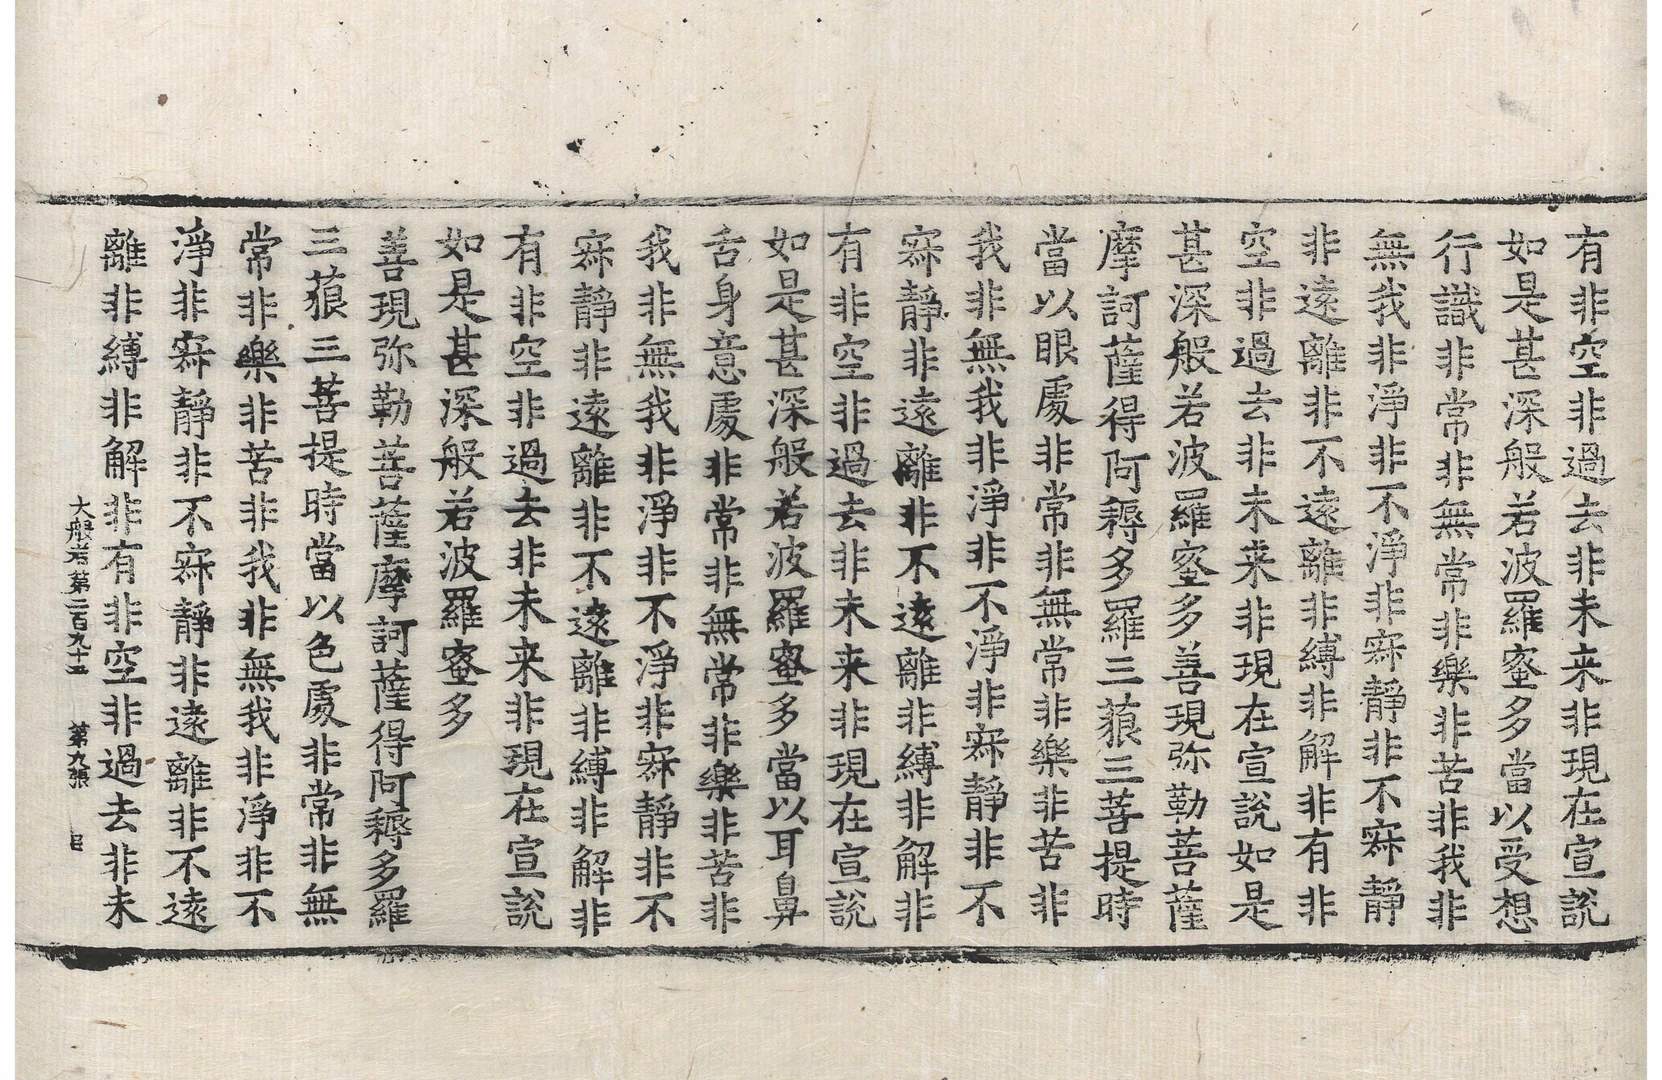 有非空非過去非未来非現在宣說
如是甚深般若波羅蜜多當以受想
行識非常非無常非樂非苦非我非
無我非淨非不淨非寂靜非不寂靜
非遠離非不遠離非縛非解非有非
空非過去非未来非現在宣說如是
甚深般若波羅蜜多善現弥勒菩薩
摩訶薩得阿耨多羅三藐三菩提時
當以眼處非常非無常非樂非苦非
我非無我非淨非不淨非寂靜非不
寂靜非遠離非不遠離非縛非解非
有非空非過去非未来非現在宣說
如是甚深般若波羅蜜多當以耳鼻
舌身意處非常非無常非樂非苦非
我非無我非淨非不淨非寂靜非不
寂靜非遠離非不遠離非縛非解非
有非空非過去非未来非現在宣說
如是甚深般若波羅蜜多
善現弥勒菩薩摩訶薩得阿耨多羅
三藐三菩提時當以色處非常非無
常非樂非苦非我非無我非淨非不
淨非寂靜非不寂靜非遠離非不遠
離非縛非解非有非空非過去非未
大般若第二百九十五 第九張